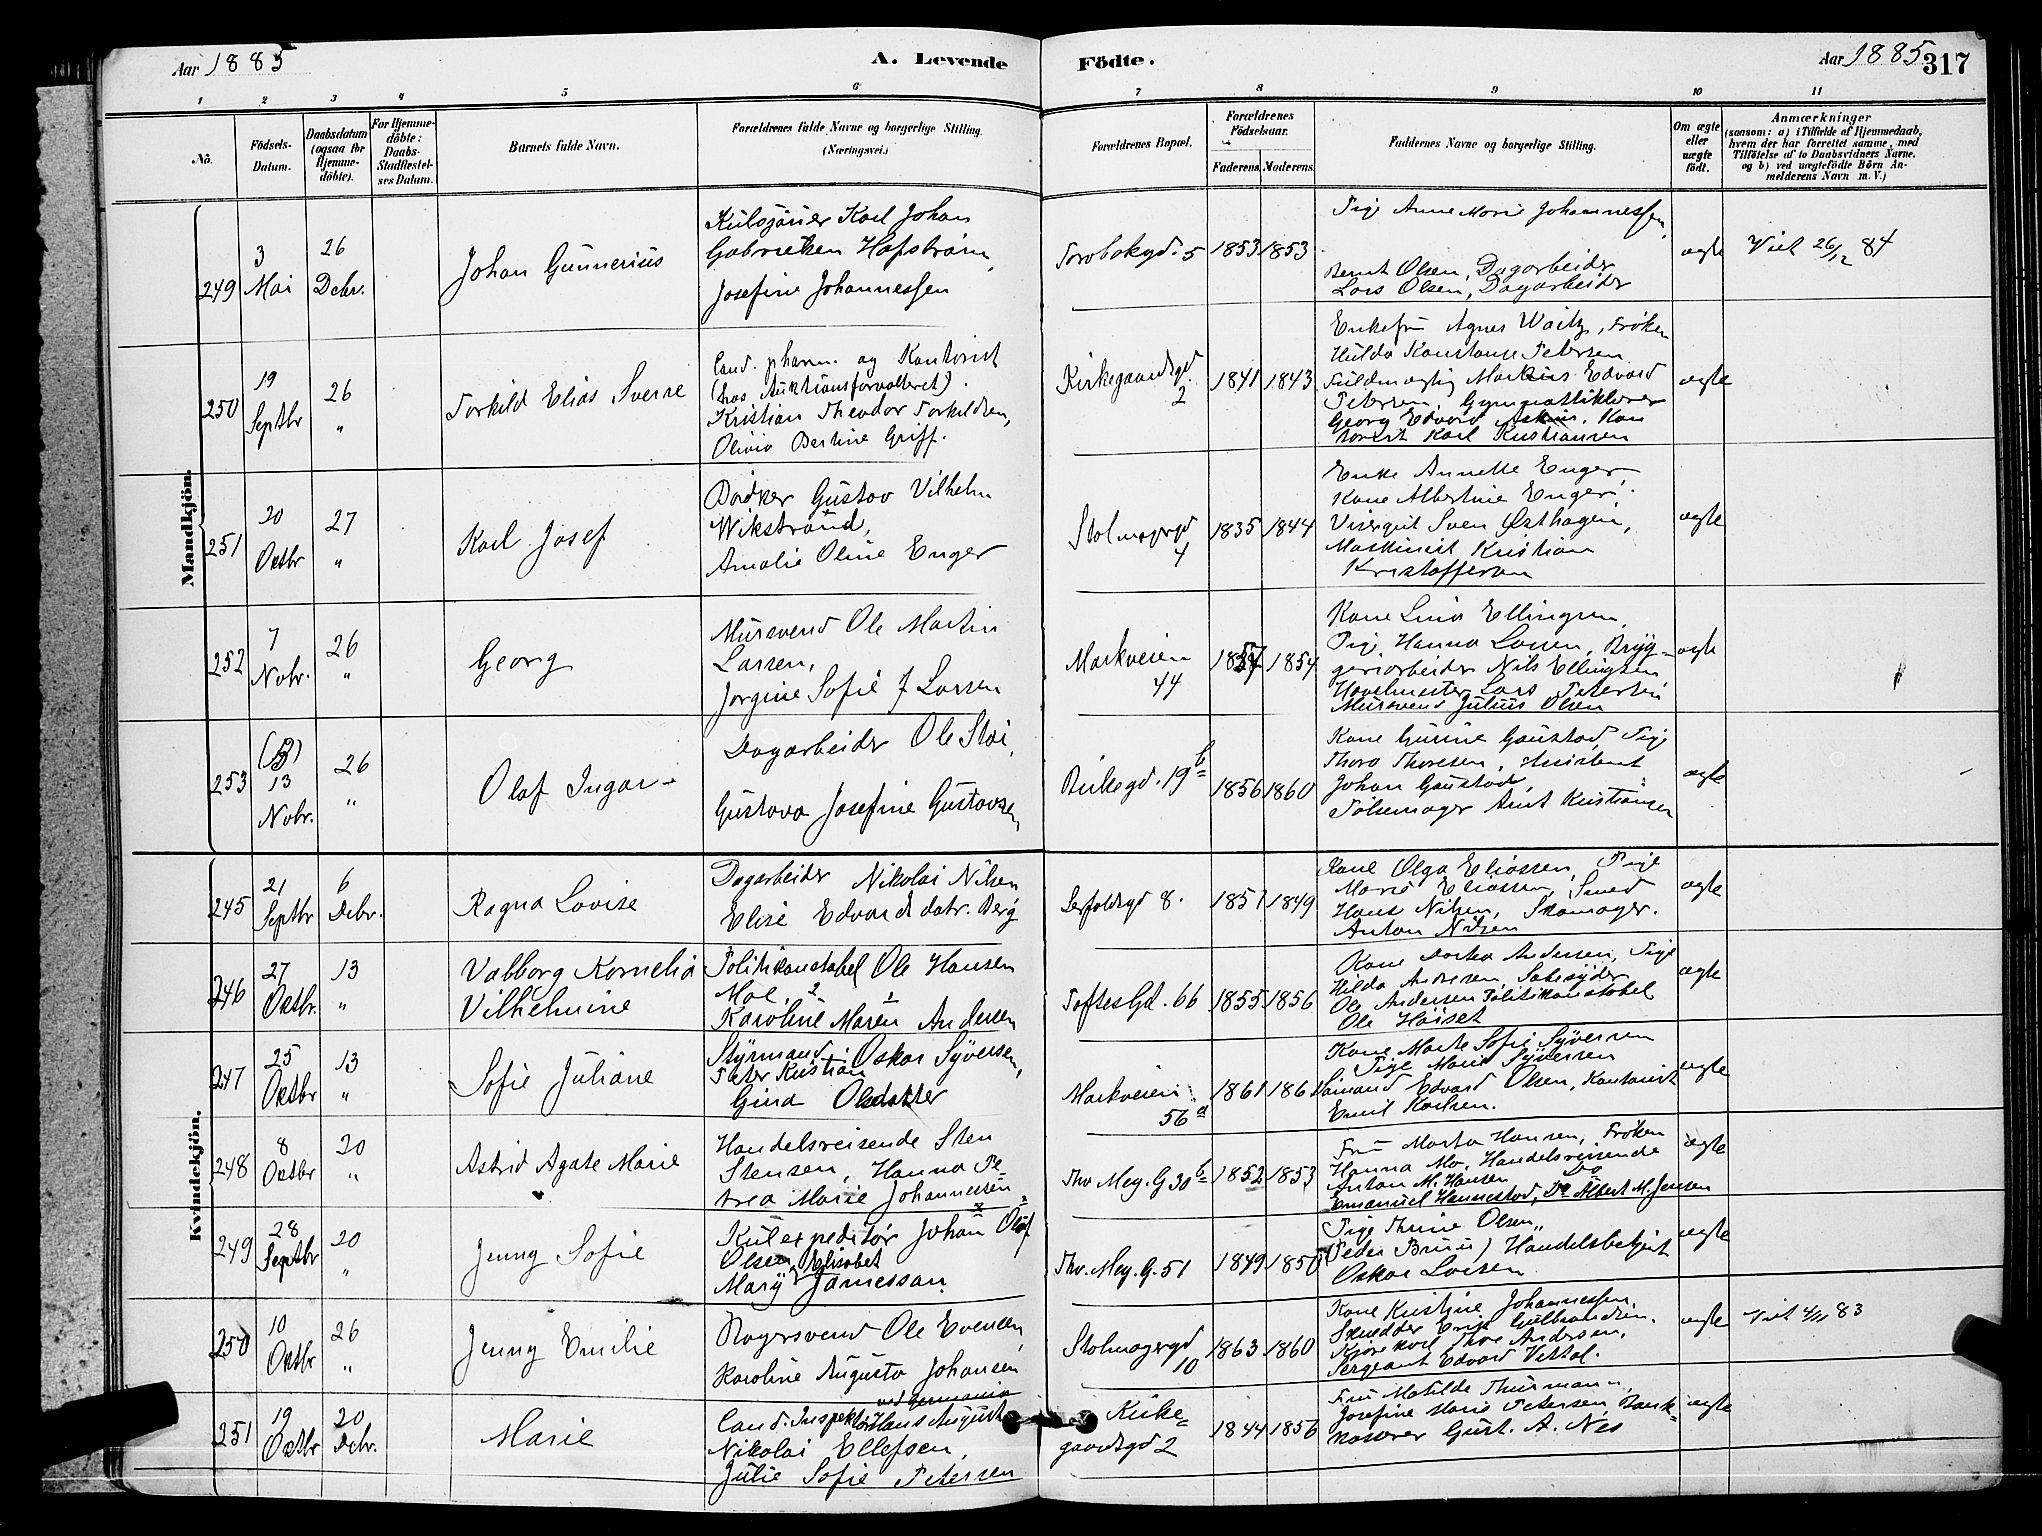 Aar 1885
A. Levende
Födte.
Aar 1885
317
1 2 3 4 5 6 7 8 9 10 11
No.
Födsels-
Datum.
Daabsdatum
(ogsaa for
Hjemme-
döbte).
For Hjemme-
döbte:
Daabs-
Stadfæstel-
ses Datum.
Barnets fulde Navn.
Forældrenes fulde Navne og borgerlige Stilling.
(Næringsvei.)
Forældrenes Bopæl.
Forældrenes
Födselsaar.
Faderens. Moderens.
Faddernes Navne og borgerlige Stilling.
Om ægte
eller
uægte
födt.
Anmærkninger
(saasom: a) i Tilfælde af Hjemmedaab,
hvem der har forrettet samme, med
Tilföielse af to Daabsvidners Navne.
og b) ved uægtefödte Börn An-
melderens Navn m. V.)
Mandkjön.
249
3
Mai
26
Debr.
Johan Gunnerius
Kulsjouer Karl Johan
Gabrielsen Hafström,
Josefine Johannessen
5
1853 1853
Pige Anne Marie Johannessen,
Bernt Olsen, Dagarbeider
Lars Olsen, Dagarbeider
ægte
Viet 26/12 84
250
19
Septbr
26
"
Torkild Elias Sverre
Cand. pharm. og Kontorist
(hos Auktionsforvalteret).
Kristian Theodor Torkildsen,
Olivia Bertine Griff.
Kirkegaardsgd.
2
1841 1843
Enkefru Agnes Waitz, Frøken
Hilda Konstanse Petersen
Fuldmægtig Markus Edvard
Petersen, Gymnastiklærer
Georg Edvard, Kon
torist Karl Kristiansen
ægte
251
20
Octbr
27
"
Karl Josef
Bødker Gustav Vilhelm
Wikstrand,
Amalie Oline Enger
Stolmagergd
4
1835 1844
Enke Annette Enger,
Kone Albertine Enger,
Visergut Sven Østhagen,
Maskinist Kristian
Kristoffersen
ægte
252
7
Nobr.
26
"
Georg
Mursvend Ole Martin
Larsen,
Jørgine Sofie J Larsen
Markveien
44
1854
Kone Lina Ellingsen,
Pige Hanna Larsen, Bryg-
geriarbeider Nils Ellingsen
Høvelmester Lars Petersen
Mursvend Julius Olsen
ægte
253
13
Nobr.
26
"
Olaf Ingar
Dagarbeider Ole Stai,
Gustava Josefine Gustavsen
Birkegd. 19 b
1856 1860
Kone Gunine Gaustad, Pige
Thora Thoresen, Assistent
Johan Gaustad,
Pølsemager Arnt Kristiansen
ægte
Kvindekjön.
245
21
Septbr
6
Debr.
Ragna Lovise
Dagarbeider Nikolai Nilsen
Elise Edvardsdatr. Berg
8.
1857 1849
Kone Olga Eliassen, Pige
Marie Eliassen, Smed
Hans Nilsen, Skomager.
Anton Nilsen
ægte
246
27
Octbr.
13
"
Valborg Kornelia
Vilhelmine
Politikonstabel Ole Hansen
Moe, 2 1
Karoline Maren Andersen
Toftes Gd. 66
1855 1856
Kone Dorthea Andersen, Pige
Hilda Andresen, Sæbesyder
Ole Andersen Politikonstabel
Ole Høiset
ægte
247
25
Oktbr
13
"
Sofie Juliane
Styrmand Oskar Syversen,
Peter Kristian
Gina Olsdatter
Markveien
56 a
1861
Kone Marte Sofie Syversen
Pige Marie Syversen
Sømand Edvard Olsen, Kontorist
Emil Karlsen.
ægte
248
8
Octbr
20
"
Astrid Agate Marie
Handelsreisende Sten
Stensen, Hanna Pe-
trea Marie Johannesen
Thv. Mey. G 30 b
1852 1853
Fru Marta Hansen, Frøken
Hanna Mo, Handelsreisende
Anton M. Hansen Do
Emanuel Hannestad, Do Albert M. Jensen
ægte
249
28
Septbr
20
"
Jenny Sofie
Kulexpeditør Johan Olaf
Olsen, Elisabet
Mary Jamesson
Thv. Mey. G. 51
1849 1850
Pige Thrine Olsen,
(Peder Bruu) Handelsbetjent
Oskar Larsen
ægte
250
10
Octbr
26
"
Jenny Emilie
Bagersvend Ole Evensen,
Karoline Augusta Johansen
Stolmagergd
10
1863 1860
Kone Kristine Johannessen,
Snedker Erik Gulbrandsen,
Kjørekarl Thor Andersen,
Sergeant Edvard Vestal.
ægte
Viet 4/11 83
251
19
Octbr
20
Debr.
Marie
ved Germania
Cand. Inspektør Hans August
Nikolai Ellefsen,
Julie Sofie Petersen
Kirke-
gaardsgd 2
1844 1856
Fru Matilde Thurmann,
Josefine Marie Petersen, Bank-
kasserer Gust. A. Nes
ægte